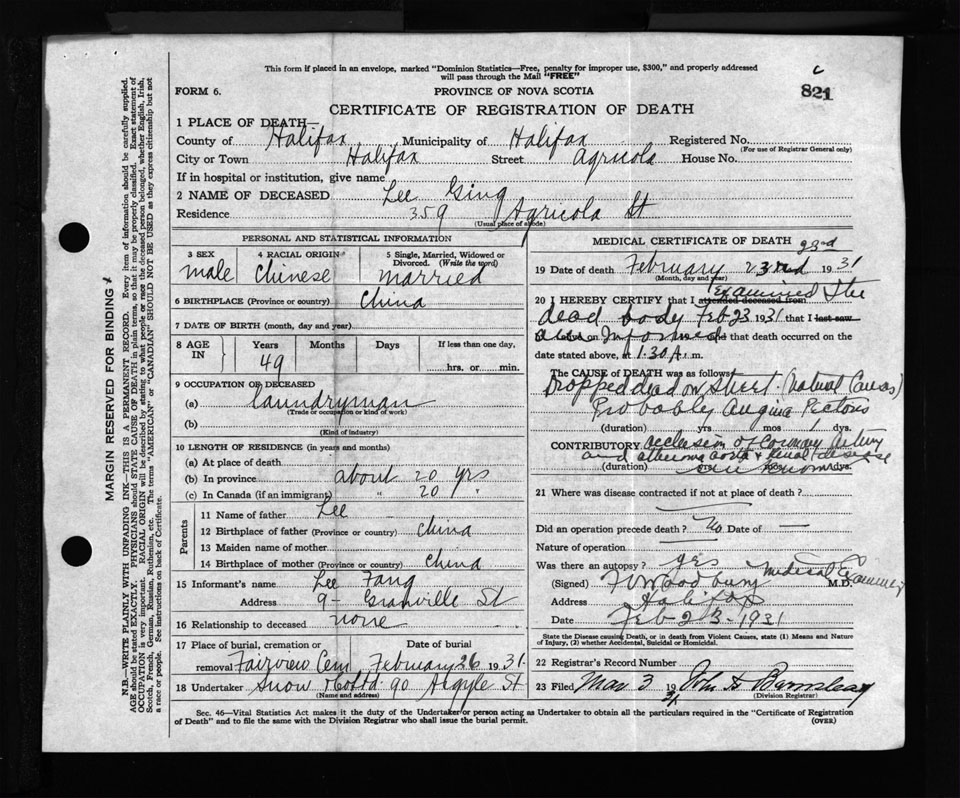 This form if placed in an envelope, marked "Dominion Statistics—Free, penalty for improper use, $300," and properly addressed
will pass through the Mail "FREE"
c
821
FORM 6.
PROVINCE OF NOVA SCOTIA
CERTIFICATE OF REGISTRATION OF DEATH
1 PLACE OF DEATH—
County of Halifax Municipality of Halifax Registered No.
(For use of Registrar General only)
City or Town Halifax Street Agricola House No.
If in hospital or institution, give name
2 NAME OF DECEASED Lee Ging
Residence 359 Agricola St
(Usual place of abode)
PERSONAL AND STATISTICAL INFORMATION
3 SEX 4 RACIAL ORIGIN 5 Single, Married, Widowed or Divorced. (Write the word)
male Chinese married
6 BIRTHPLACE (Province or country) China
7 DATE OF BIRTH (month, day and year)
8 AGE IN Years Months Days If less than one day,
49 hrs. or min.
9 OCCUPATION OF DECEASED
(a) Laundryman
(Trade or occupation or kind of work)
(b)
(Kind of industry)
10 LENGTH OF RESIDENCE (in years and months)
(a) At place of death
(b) In province about 20 yrs
(c) In Canada (if an immigrant) " 20 "
Parents
11 Name of father Lee
12 Birthplace of father (Province or country) China
13 Maiden name of mother
14 Birthplace of mother (Province or country) China
15 Informant's name Lee Fang
Address 9- Granville St
16 Relationship to deceased none
17 Place of burial, cremation or removal Date of burial
Fairview Cem February 26 1931
18 Undertaker Snow & Co Ltd 90 Argyle St
(Name and address)
MEDICAL CERTIFICATE OF DEATH
23rd
19 Date of death February 23rd 1931
(Month, day and year)
Examined the
20 I HEREBY CERTIFY that I attended deceased from
dead body Feb 23 1931 that I last saw
Informed that death occurred on the
date stated above, at 1.30 A.m.
The CAUSE OF DEATH was as follows:
Dropped dead on street. (Natural Causes)
Probably Angina Pectoris
(duration) yrs mos 1 dys.
CONTRIBUTORY occlusion of Coronary artery
and atheroma aorta & renal disease
(duration) yrs. mos. dys.
21 Where was disease contracted if not at place of death?
Did an operation precede death? No Date of —
Nature of operation
Was there an autopsy? yes
Medical Examiner
(Signed) Woodbury M.D.
Address Halifax
Date Feb 23-1931
State the Disease causing Death, or in death from Violent Causes, state (1) Means and Nature
of Injury, (2) whether Accidental, Suicidal or Homicidal.
22 Registrar's Record Number
23 Filed Mar 3 1931 John A Barnstead
(Division Registrar)
Sec. 46—Vital Statistics Act makes it the duty of the Undertaker or person acting as Undertaker to obtain all the particulars required in the "Certificate of Registration
of Death" and to file the same with the Division Registrar who shall issue the burial permit.
(OVER)
MARGIN RESERVED FOR BINDING
N.B.—WRITE PLAINLY WITH UNFADING INK—THIS IS A PERMANENT RECORD. Every item of information should be carefully supplied.
AGE should be stated EXACTLY. PHYSICIANS should STATE CAUSE OF DEATH in plain terms, so that it may be properly classified. Exact statement of
OCCUPATION is very important. RACIAL ORIGIN will be described by stating to what people or race the deceased person belonged, whether English, Irish,
Scotch, French, German, Russian, Ruthenian, etc. The terms "AMERICAN" or "CANADIAN" SHOULD NOT BE USED as they express citizenship but not
a race or people. See instructions on back of Certificate.